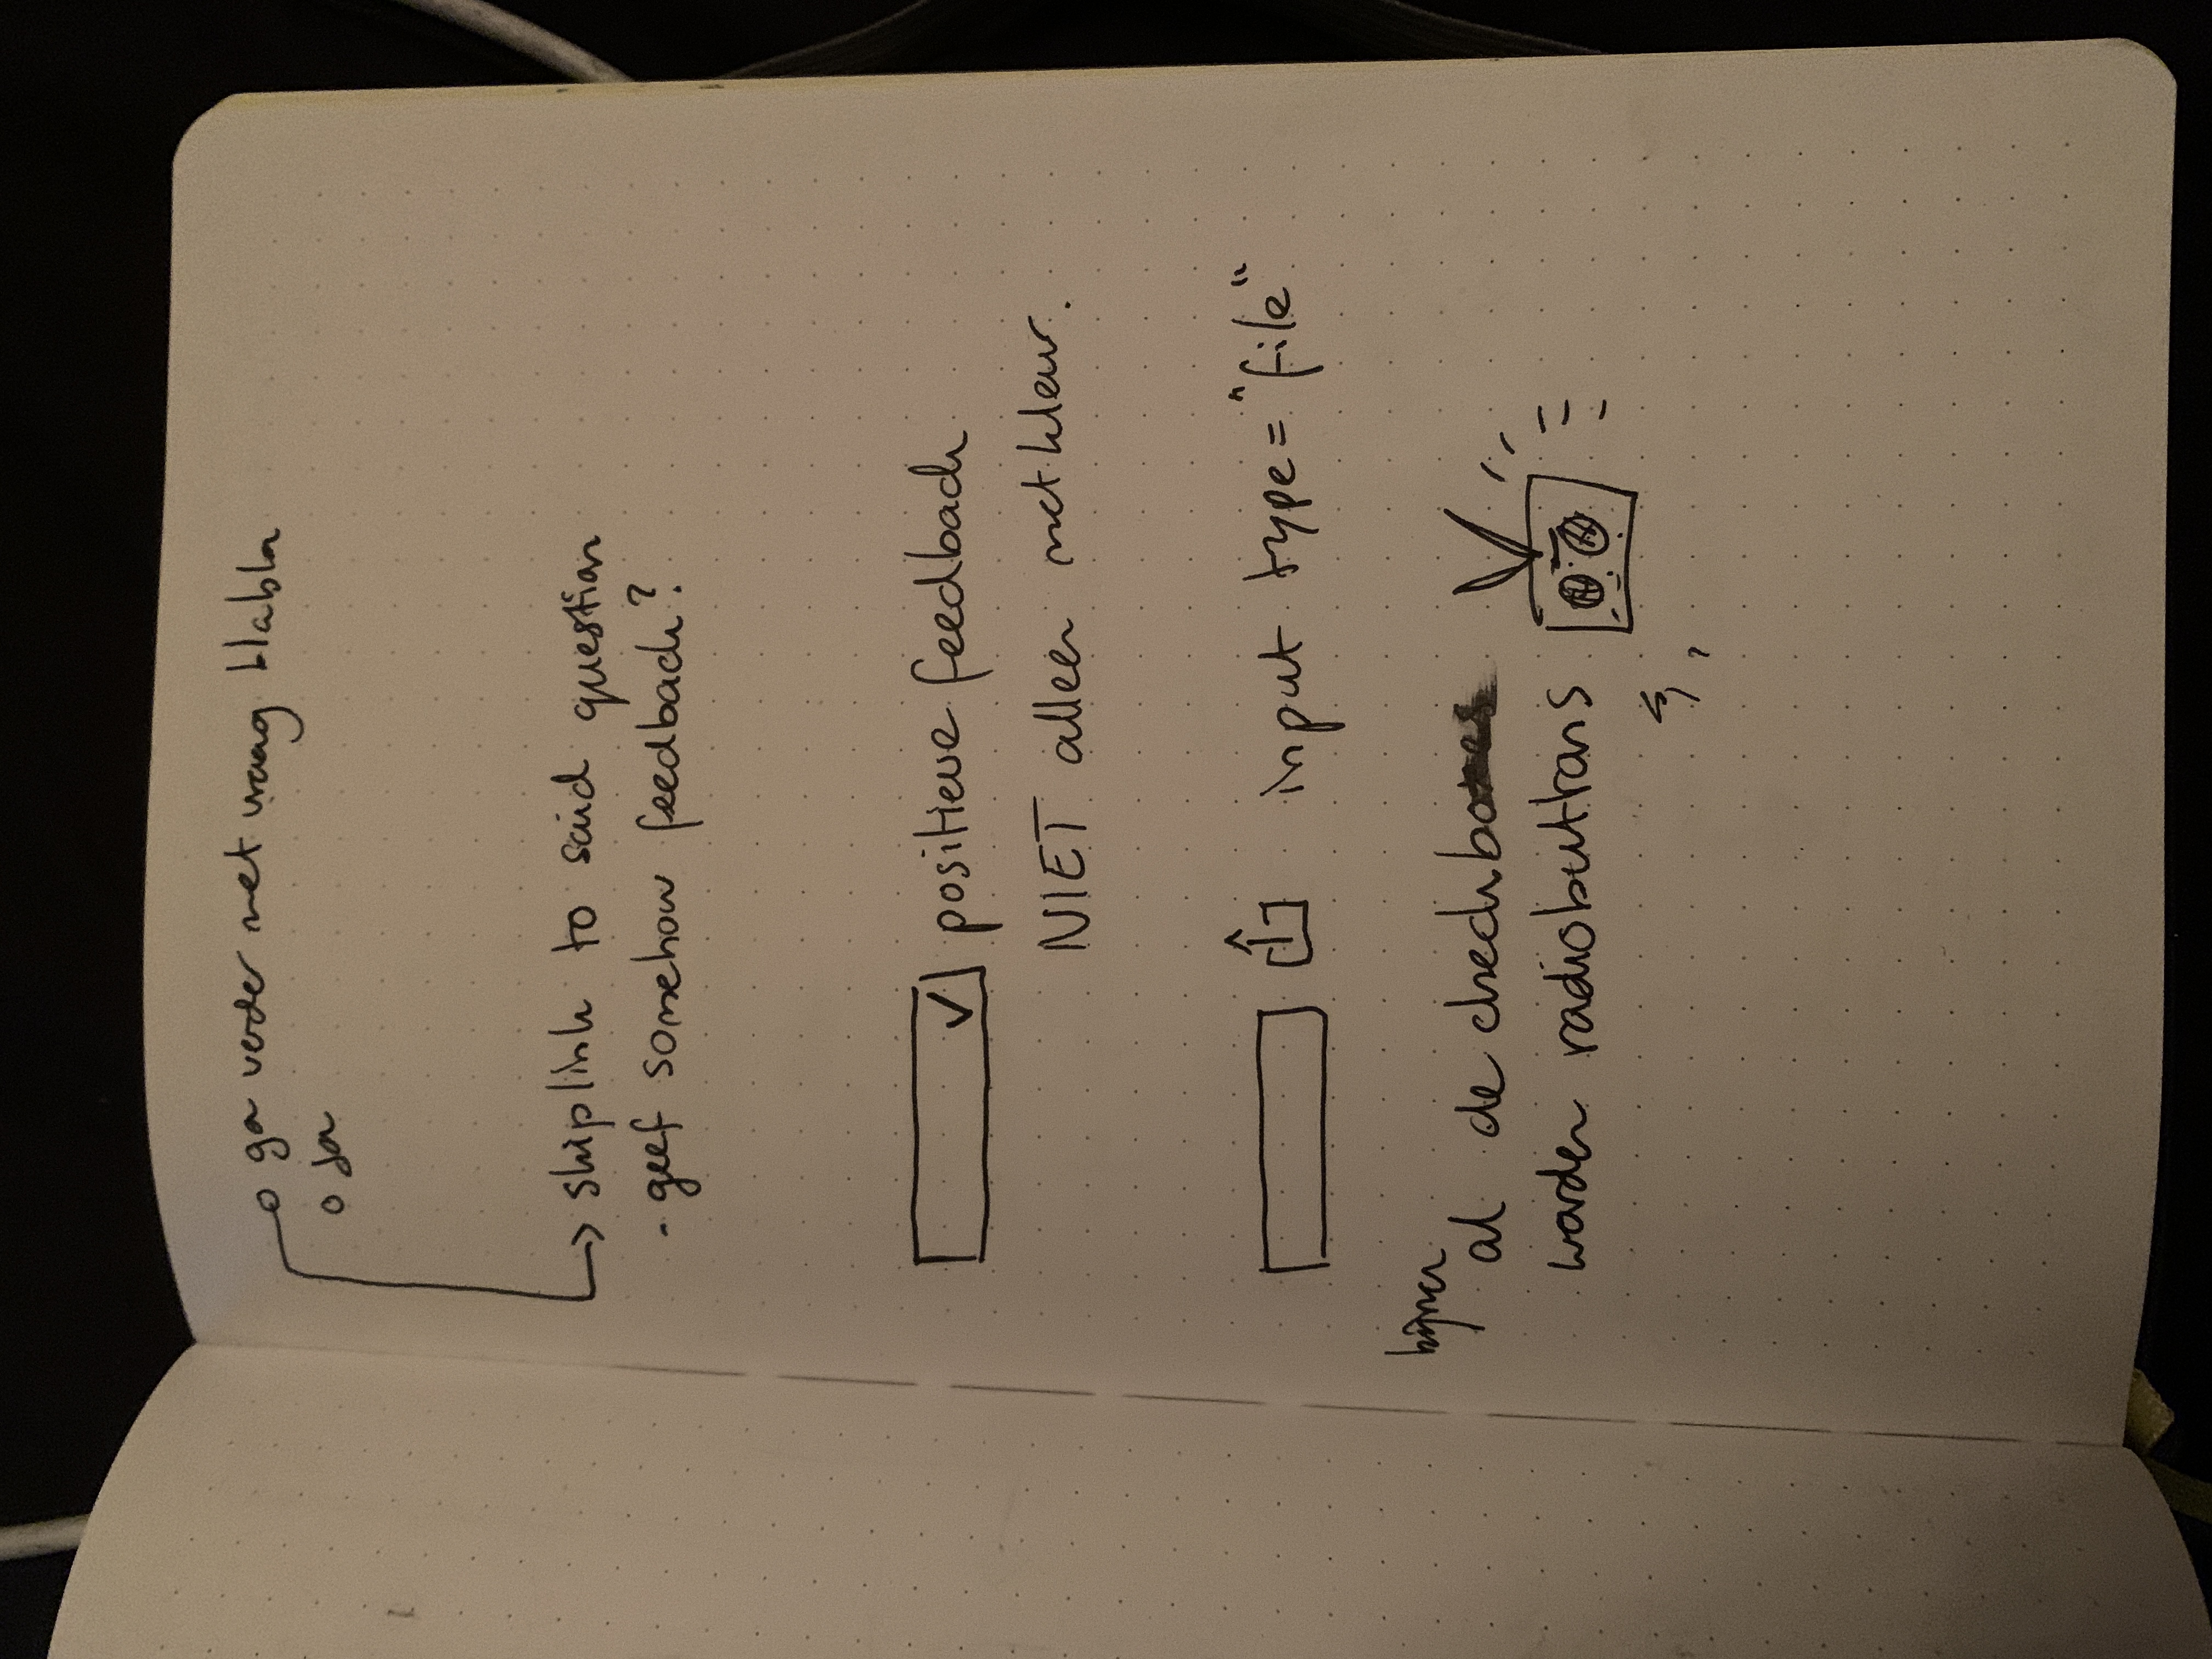 ga verder met vraag blabla
Ja
skiplink to said question
- geef somehow feedback?
positieve feedback
NIET alleen met kleur.
input type="file"
bijna
al de checkboxes
worden radiobuttons